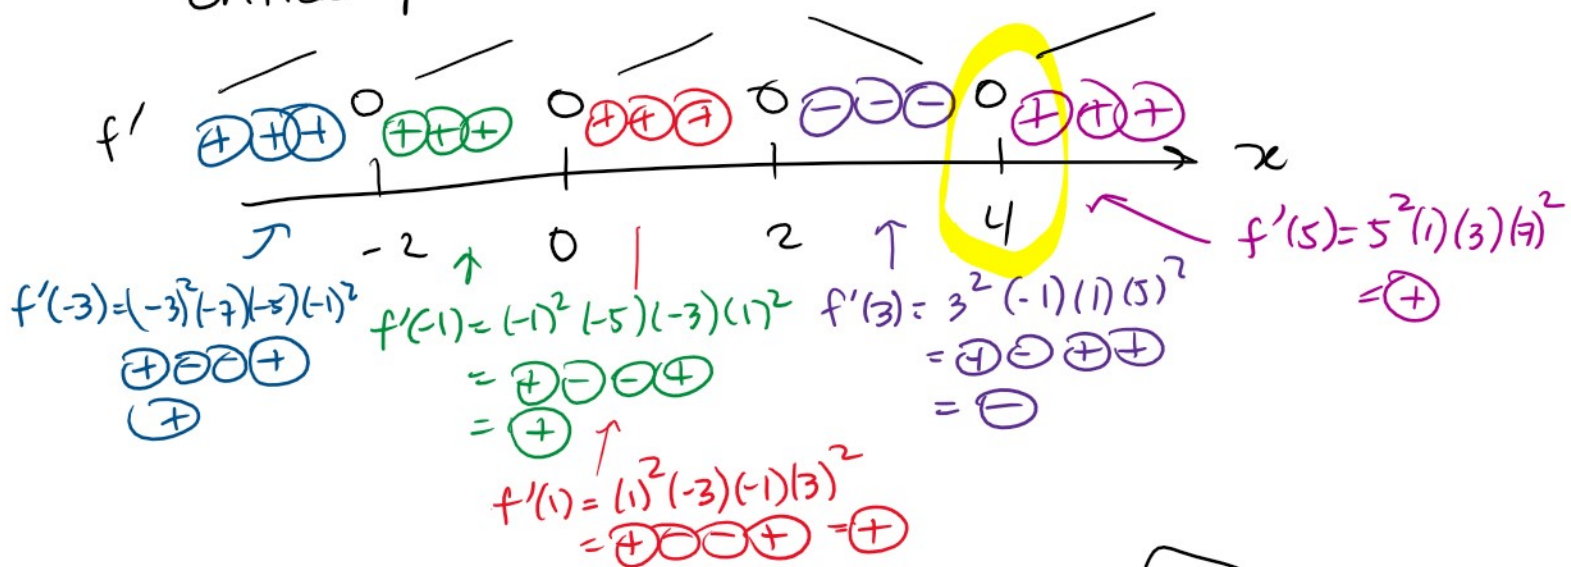 f' + + + 0 + + + 0 + + + 0 - - - 0 + + +
x
-2 0 2 4
f'(-3)=(-3)²(-7)(-5)(-1)²
+ - - +
+
f'(-1)= (-1)² (-5)(-3)(1)²
= + - - +
= +
f'(1)= (1)²(-3)(-1)(3)²
= + - - + = +
f'(3)= 3² (-1)(1)(5)²
= + - + +
= -
f'(5)= 5²(1)(3)(7)²
= +